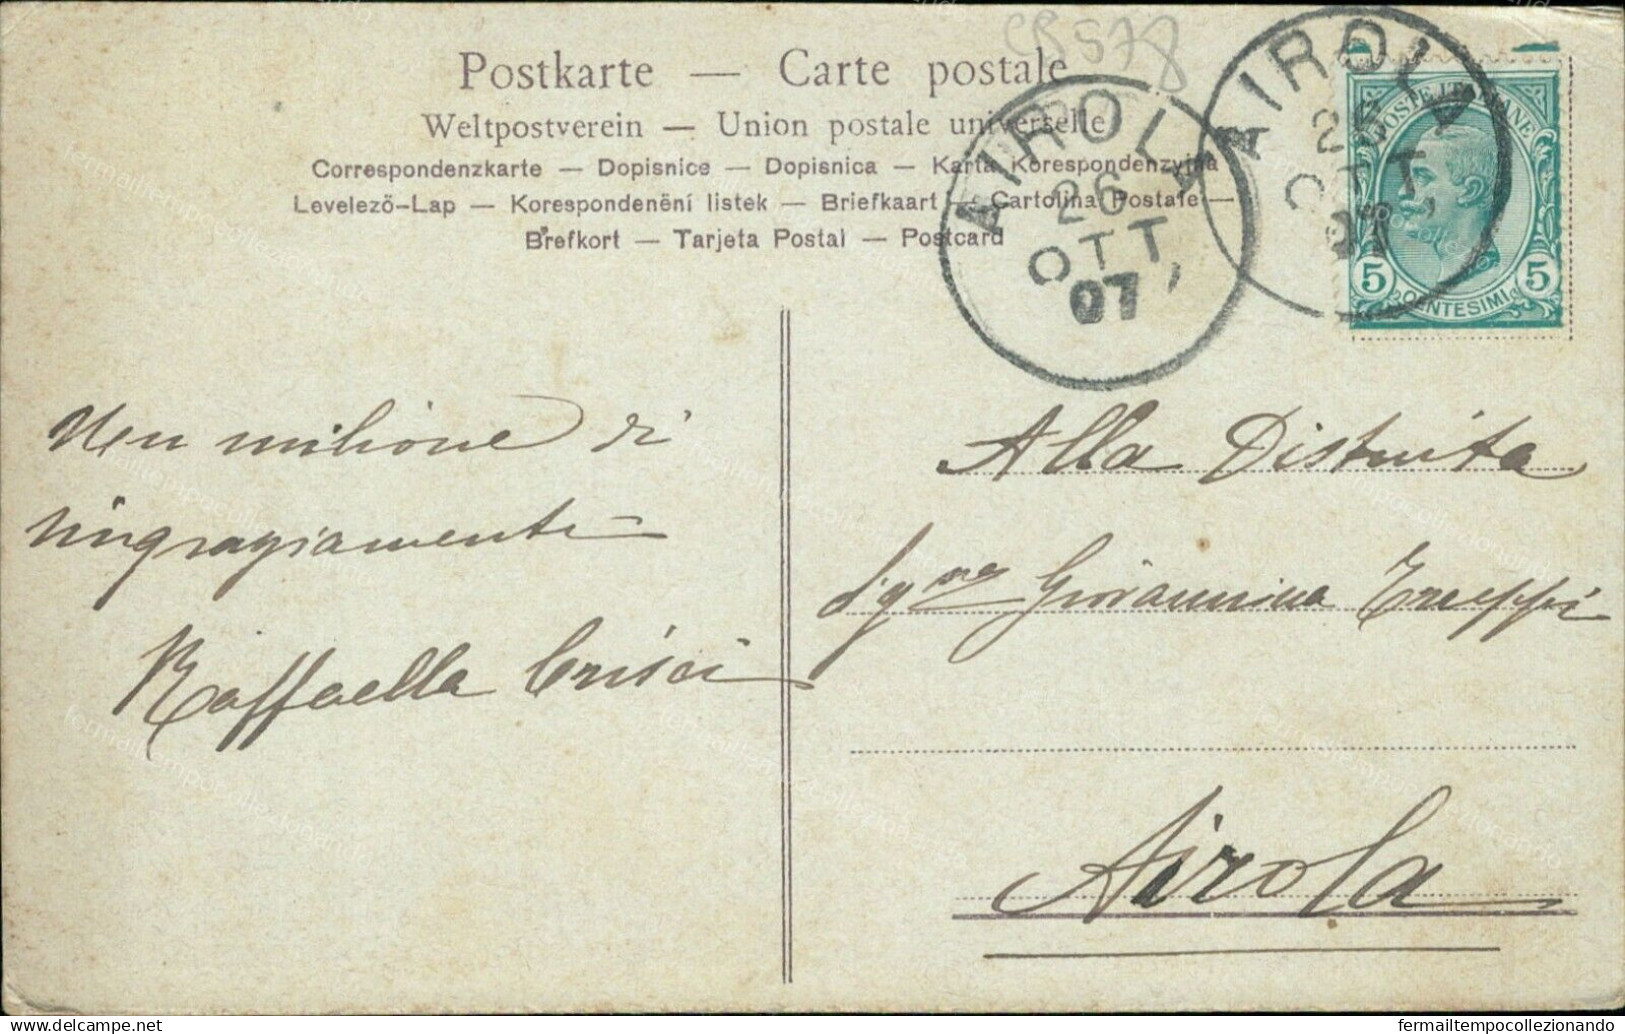 CB578
Postkarte — Carte postale
Weltpostverein — Union postale universelle
Correspondenzkarte — Dopisnice — Dopisnica — Karta Korespondenzyjna
Levelező-Lap — Korespondenění listek — Briefkaart — Cartolina Postale —
Brefkort — Tarjeta Postal — Postcard
AIROLA
26
OTT
07
AIROLA
26
OTT
07
POSTE ITALIANE
5 5
CENTESIMI
Un milione di
ringraziamenti
Raffaella Crisci
Alla Distinta
Sig.na Giovannina Truppi
Airola
delcampe.net
fermailtempocollezionando